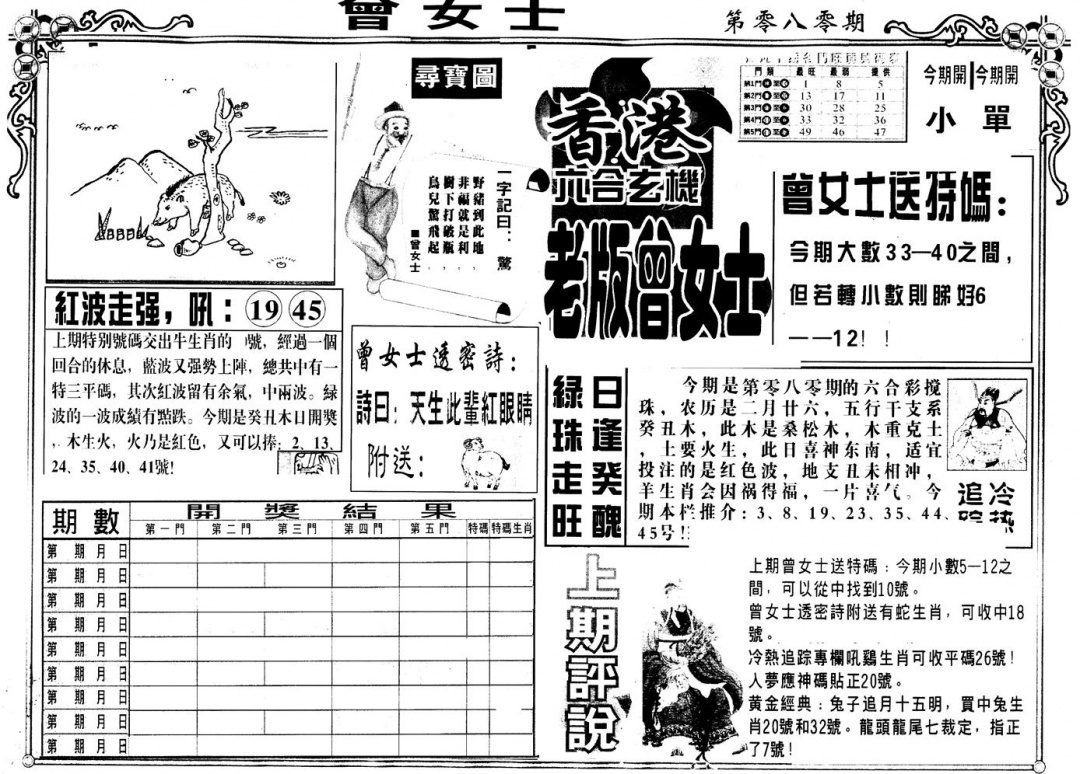 曾女士
第零八零期
尋寶圖
一字記曰：驚
野豬到此地，
非福就是利，
樹下打破瓶，
鳥兒驚飛起。
■曾女士
香港
六合玄機
老版曾女士
門類 最旺 最弱 提供
第1門 1 8 5
第2門 13 17 11
第3門 30 28 25
第4門 33 32 36
第5門 49 46 47
今期開 今期開
小 單
曾女士送特碼：
今期大數33—40之間，
但若轉小數則睇好6
——12！！
紅波走强，吼：19 45
上期特别號碼交出牛生肖的 號，經過一個
回合的休息，藍波又强勢上陣，總共中有一
特三平碼，其次紅波留有余氣，中兩波。緑
波的一波成績有點跌。今期是癸丑木日開獎
，木生火，火乃是紅色，又可以捧：2、13、
24、35、40、41號!
曾女士透密詩：
詩曰：天生此輩紅眼睛
附送：
綠珠走旺
日逢癸醜
今期是第零八零期的六合彩搅
珠，农历是二月廿六，五行干支系
癸丑木，此木是桑松木，木重克土
，土要火生，此日喜神东南，适宜
投注的是红色波，地支丑未相冲，
羊生肖会因祸得福，一片喜气。今
期本栏推介：3、8、19、23、35、44、
45号!!
冷热
追踪
期數 開獎結果
第一門 第二門 第三門 第四門 第五門 特碼 特碼生肖
第 期 月 日
第 期 月 日
第 期 月 日
第 期 月 日
第 期 月 日
第 期 月 日
第 期 月 日
第 期 月 日
第 期 月 日
上期評說
上期曾女士送特碼：今期小數5—12之
間，可以從中找到10號。
曾女士透密詩附送有蛇生肖，可收中18
號。
冷熱追踪專欄吼鷄生肖可收平碼26號！
人夢應神碼貼正20號。
黄金經典：兔子追月十五明，買中兔生
肖20號和32號。龍頭龍尾七裁定，指正
了7號！